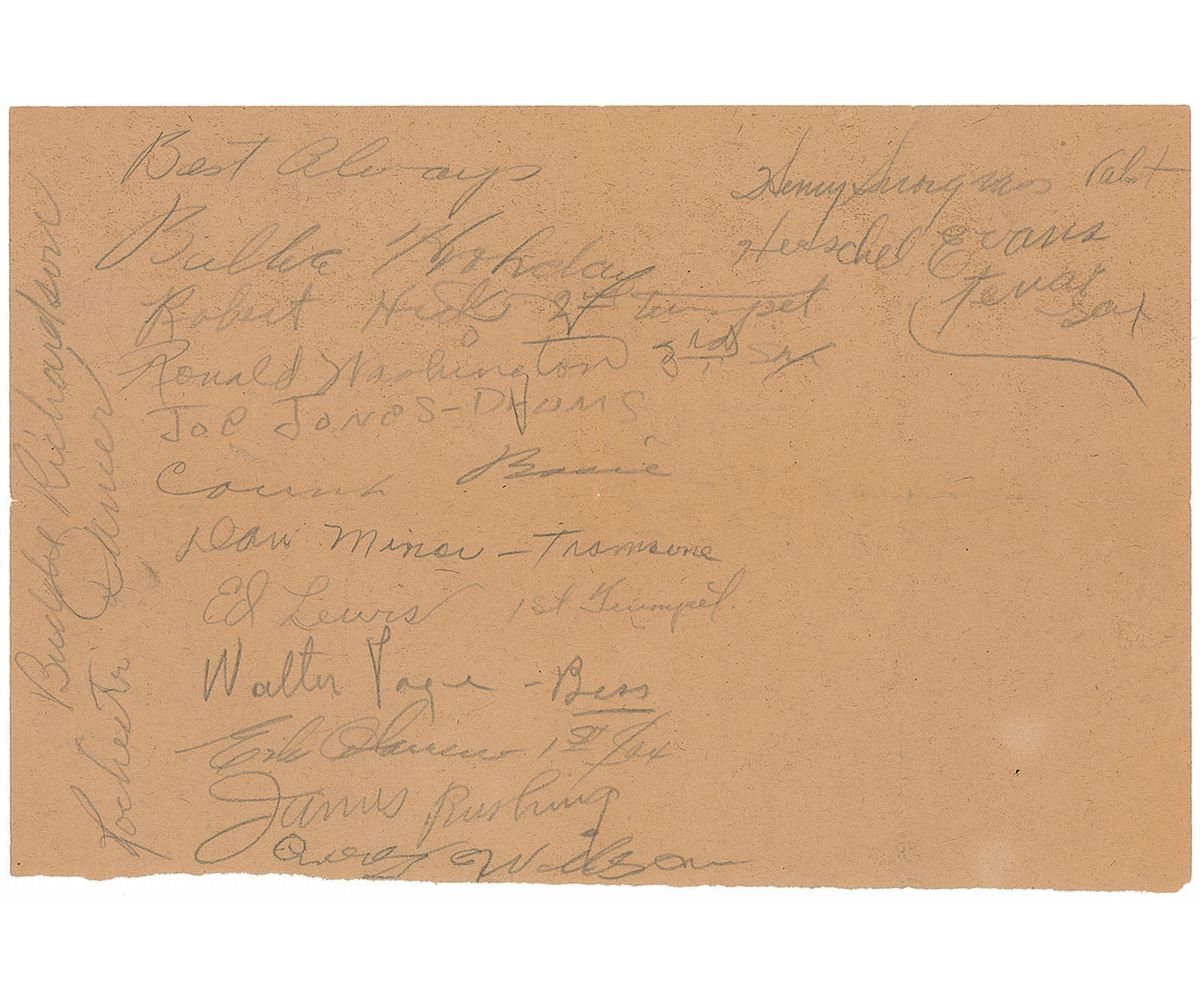 Best Always
Billie Holiday
Robert Hicks 2nd Trumpet
Ronald Washington 3rd Sax
Joe Jones - Drums
Count Basie
Dan Minor - Trombone
Ed Lewis 1st Trumpet.
Walter Page - Bass
Earle 1st Sax
James Rushing
Wilson
Henry
Herschel Evans
Tenor
Sax
Richardson
Rochester